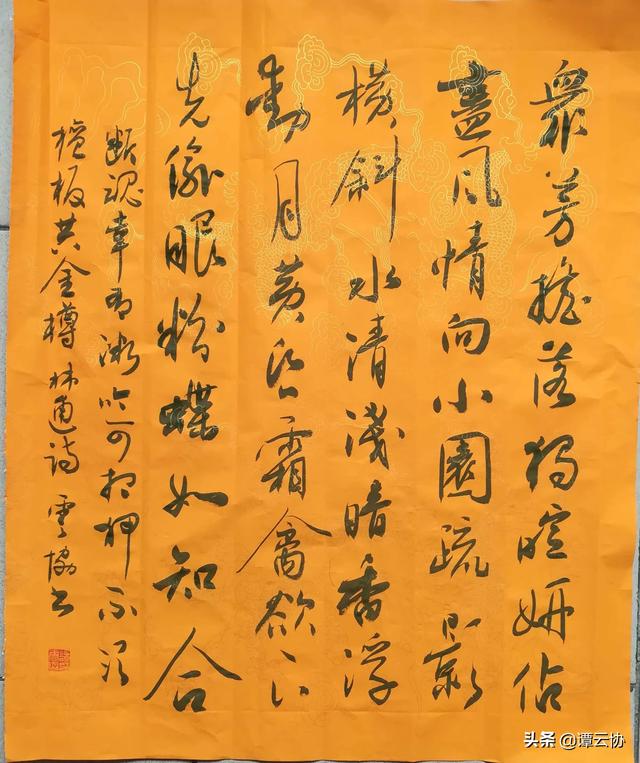 眾芳搖落獨暄妍佔
盡风情向小園疏影
橫斜水清淺暗香浮
動月黃昏霜禽欲下
先偷眼粉蝶如知合
斷魂幸有微吟可相狎不須
檀板共金樽 林逋诗 雲協书
头条 @谭云协